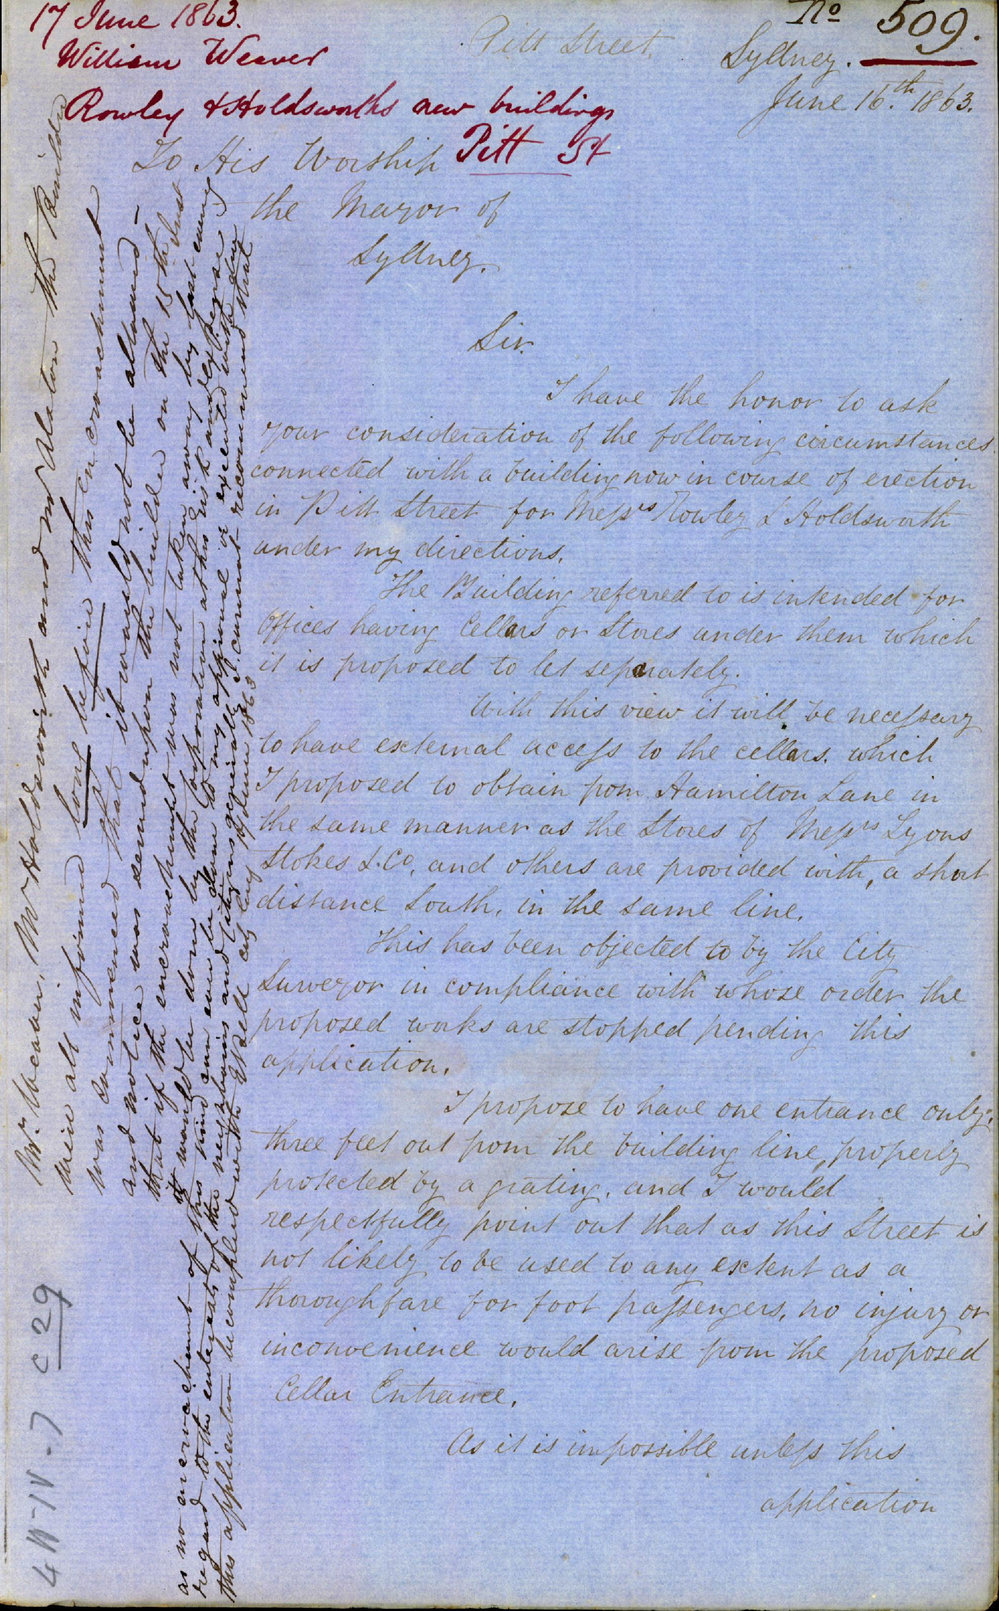 17 June 1863.
William Weaver
Rowley & Holdsworths new buildings
Pitt St
No 509.
Pitt Street,
Sydney.
June 16.th 1863.
To His Worship
the Mayor of
Sydney.
Sir
I have the honor to ask
your consideration of the following circumstances
connected with a building now in course of erection
in Pitt Street for Messrs Rowley & Holdsworth
under my directions.
The Building referred to is intended for
Offices having Cellars or Stores under them which
it is proposed to let separately.
With this view it will be necessary
to have external access to the cellars. which
I proposed to obtain from Hamilton Lane in
the same manner as the Stores of Messrs Lyons
Stokes & Co. and others are provided with, a short
distance South, in the same line.
This has been objected to by the City
Surveyor in compliance with whose order the
proposed works are stopped pending this
application.
I propose to have one entrance only;
three feet out from the building line, properly
protected by a grating, and I would
respectfully point out that as this Street is
not likely to be used to any extent as a
thoroughfare for foot passengers, no injury or
inconvenience would arise from the proposed
Cellar Entrance.
As it is impossible unless this
application
Mr Weaver, Mr Holdsworth and Mr the Builder
were all informed long before this encroachment
was commenced that it would not be allowed –
and notice was served upon the builder on the 15th Inst
that if the encroachment was not taken away by last evening
it would be done by the Corporation at his risk and expense
as no encroachment of this kind can ever be done to my approval or executed with due
regard to the interests of the neighbours and citizens generally I cannot recommend that
this application be complied with E Bell City 17 June 1863
4 W-IV-7 C 29